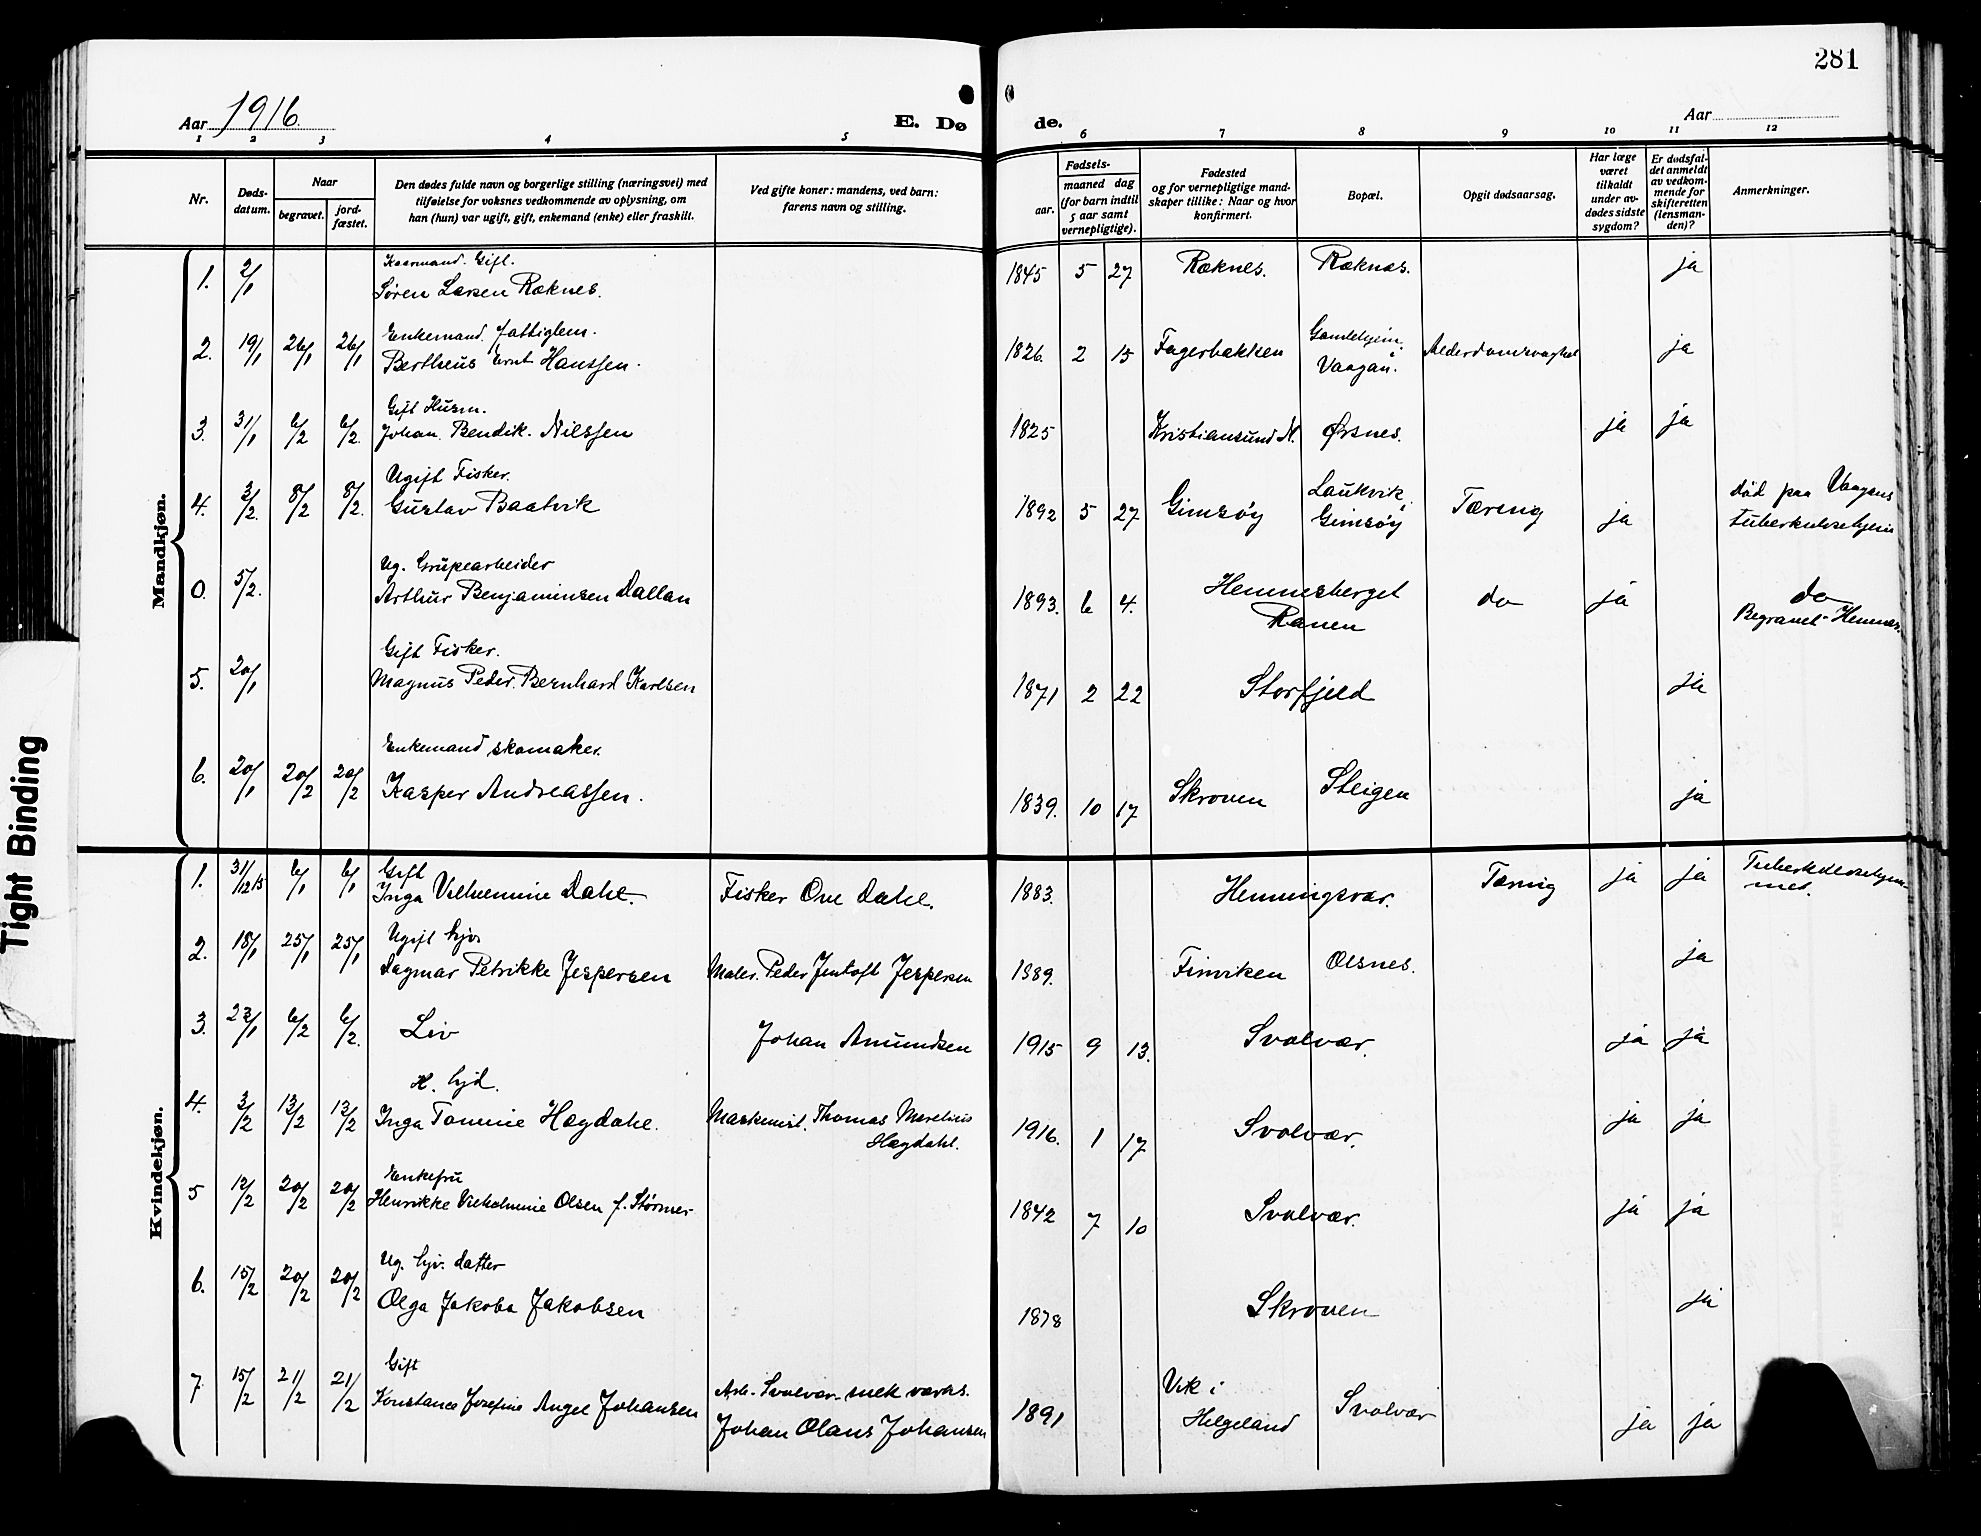 281
Aar 1916.
E. Dø
de.
Aar
1 2 3 4 5 6 7 8 9 10 11 12
Nr.
Døds-
datum.
Naar
begravet.
jord-
fæstet.
Den dødes fulde navn og borgerlige stilling (næringsvei) med
tilføielse for voksnes vedkommende av oplysning, om
han (hun) var ugift, gift, enkemand (enke) eller fraskilt.
Ved gifte koner: mandens, ved barn:
farens navn og stilling.
Fødsels-
aar.
maaned dag
(for barn indtil
5 aar samt
vernepligtige).
Fødested
og for vernepligtige mand-
skaper tillike: Naar og hvor
konfirmert.
Bopæl.
Opgit dødsaarsag.
Har læge
været
tilkaldt
under av-
dødes sidste
sygdom?
Er dødsfal-
det anmeldt
av vedkom-
mende for
skifteretten
(lensman-
den)?
Anmerkninger.
Mandkjøn.
Kaarmand. Gift.
1. 2/1 Søren Larsen Ræknes. 1845 5 27 Ræknes. Ræknes. ja
Enkemand. fattiglem.
2. 19/1 26/1 26/1 Bertheus Ernt Hanssen. 1826. 2 15 Fagerbakken Gamlehjem Vaagan. Alderdomssvaghet ja
Gift Husm.
3. 31/1 6/2 6/2 Johan. Bendik. Nilssen 1825 Kristiansund N. Ørsnes. ja ja
Ugift Fisker.
4. 3/2. 8/2 8/2. Gustav Baatvik 1892 5 27 Gimsøy Laukvik Gimsøy Tæring ja død paa Vaagans
tuberkulosehjem
Ug. Grupearbeider
0. 5/2. Arthur Benjaminsen Dallan 1893. 6 4. Hemnesberget
Ranen do ja do
Begravet Hemnes.
Gift Fisker.
5. 20/1 Magnus Peder. Bernhard Karlsen 1871 2 22 Storfjeld ja
Enkemand skomaker.
6. 20/1 20/2 20/2 Kasper Andreassen. 1839. 10 17 Skroven Steigen ja
Kvindekjøn.
Gift
1. 31/12 15 6/1 6/1 Inga Vilhelmine Dahl. Fisker Ove Dahl. 1883. Henningsvær. Tæring ja ja Tuberkulosehjem-
met.
Ugift hjv
2. 18/1 25/1 25/1 Dagmar Petrikke Jespersen Maler. Peder Jentoft Jespersen 1889. Finviken Olsnes. ja
3. 23/1 6/2 6/2. Liv Johan Amundsen 1915 9 13. Svolvær. ja ja
H. hjd.
4. 3/2 13/2 13/2 Inga Tommie Hægdahl. Maskinist. Thomas Morelius
Hægdahl. 1916. 1 17 Svolvær. ja ja
Enkefru
5 12/2 20/2 20/2 Henrikke Vilhelmine Olsen f. Størmer 1842 7 10 Svolvær. ja ja
Ug. hjv. datter
6. 15/2 20/2 20/2 Olga Jakoba Jakobsen 1878 Skroven ja
Gift
7. 15/2 21/2 21/2 Konstance Josefine Angel Johansen Arb. Svolvær mek værks.
Johan Olaus Johansen 1891 Vik i
Helgeland Svolvær ja ja
Tight Binding